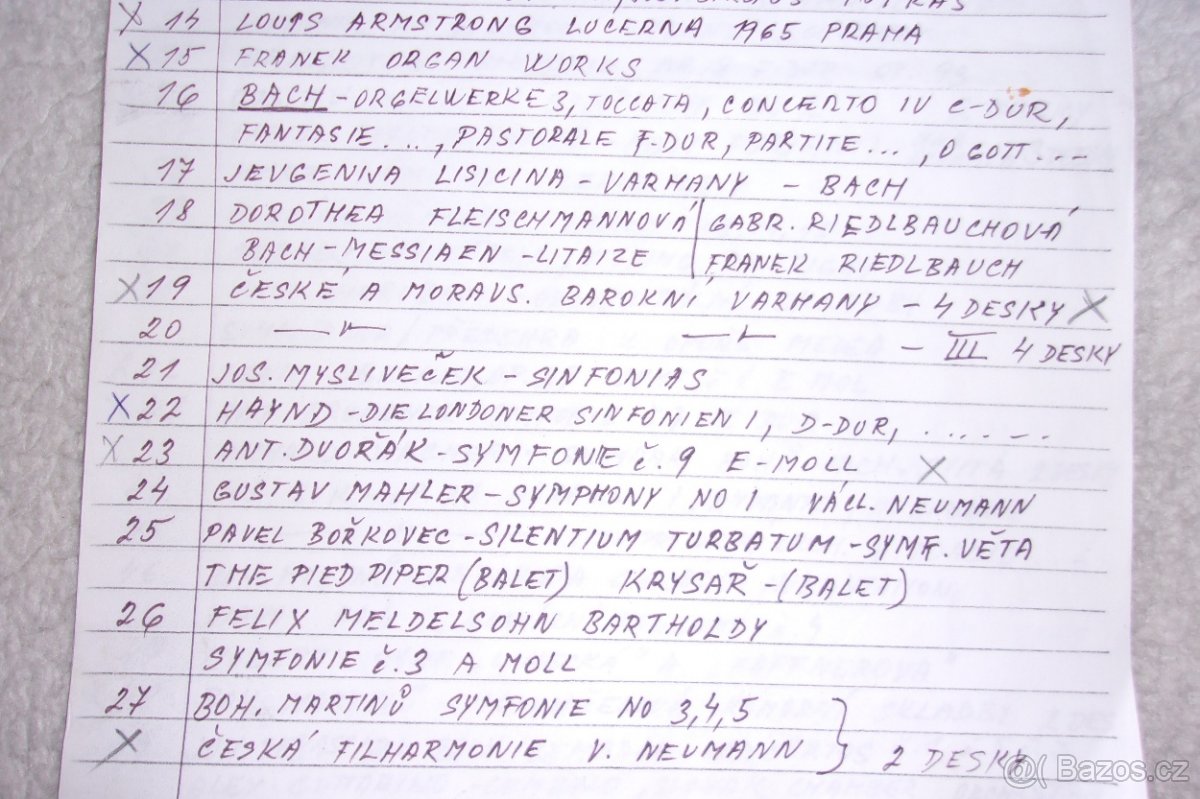 X 14 LOUIS ARMSTRONG LUCERNA 1965 PRAHA
X 15 FRANEK ORGAN WORKS
16 BACH - ORGELWERKE 3, TOCCATA, CONCERTO IV C-DUR,
FANTASIE ..., PASTORALE F-DUR, PARTITE ..., O GOTT ...
17 JEVGENIJA LISICINA - VARHANY - BACH
18 DOROTHEA FLEISCHMANNOVÁ GABR. RIEDLBAUCHOVÁ
BACH-MESSIAEN-LITAIZE FRANEK RIEDLBAUCH
X 19 ČESKÉ A MORAVS. BAROKNÍ VARHANY - 4 DESKY X
20 —"— —"— - III 4 DESKY
21 JOS. MYSLIVEČEK - SINFONIAS
X 22 HAYND - DIE LONDONER SINFONIEN 1, D-DUR, .......
X 23 ANT. DVOŘÁK - SYMFONIE č. 9 E-MOLL X
24 GUSTAV MAHLER - SYMPHONY NO 1 VÁCL. NEUMANN
25 PAVEL BOŘKOVEC - SILENTIUM TURBATUM - SYMF. VĚTA
THE PIED PIPER (BALET) KRYSAŘ - (BALET)
26 FELIX MELDELSOHN BARTHOLDY
SYMFONIE č. 3 A MOLL
27 BOH. MARTINŮ SYMFONIE NO 3,4,5
X ČESKÁ FILHARMONIE V. NEUMANN } 2 DESKY
Bazoš.cz